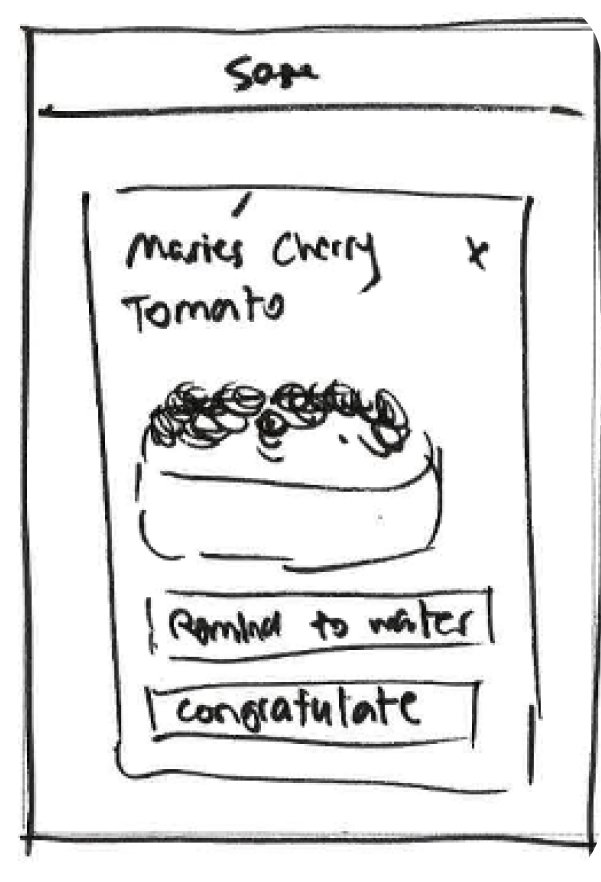 Maries Cherry
x
Tomato
Remind to water
congratulate